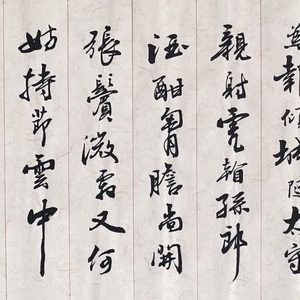 為報傾城隨太守
親射虎看孫郎
酒酣胸膽尚開
張鬢微霜又何
妨持節雲中